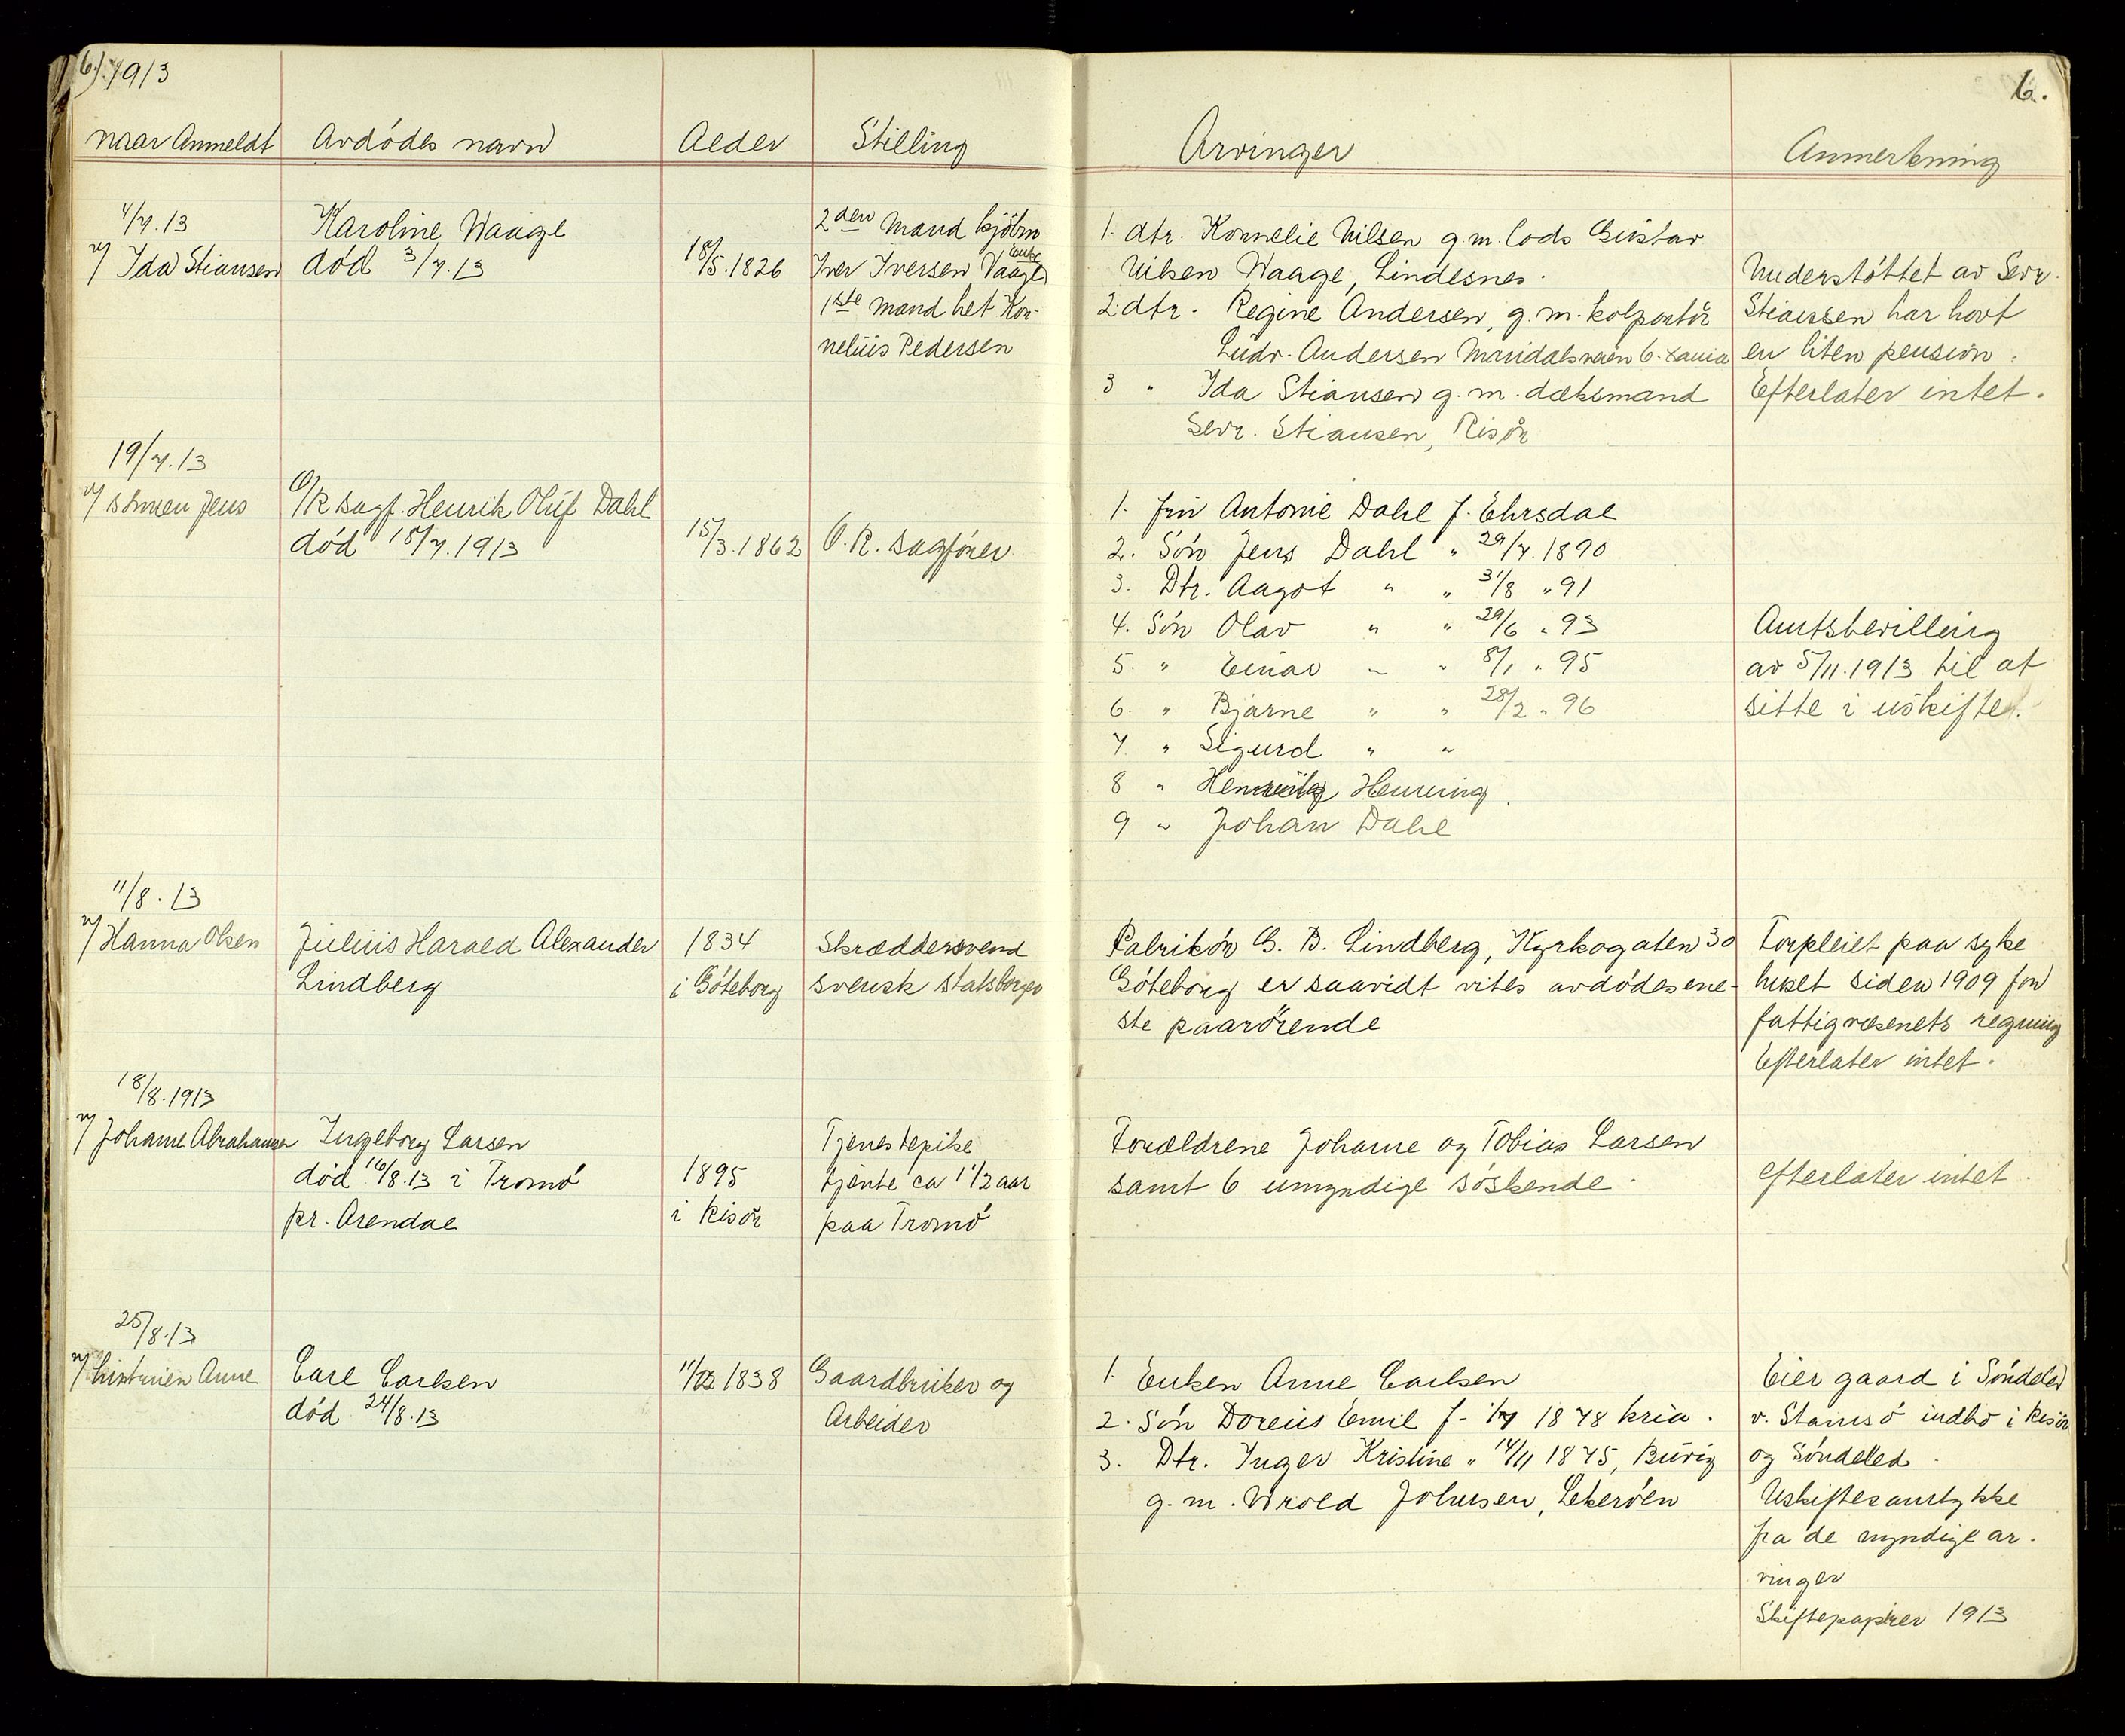 6.) 1913
6.
Naar Anmeldt Avdødes navn Alder Stilling Arvinger Anmerkning
4/7.13
v/ Ida Stiansen
Karoline Waage
død 3/7.13
18/5.1826
2den mand kjöbm
Iver Iversen Vaage
enke
1ste mand het Kor-
nelius Pedersen
1. dtr. Kornelie Nilsen g.m. lods Gustav
Nilsen Waage, Lindesnes.
2. dtr. Regine Andersen, g.m. kolportör
Ludv. Andersen Maridalsveien 6. Xania
3 " Ida Stiansen g.m. dæksmand
Sevr. Stiansen, Risör
Understöttet av Sevr.
Stiansen har havt
en liten pension.
Efterlater intet.
19/7.13
v/ sönnen Jens
O/R sagf. Henrik Oluf Dahl
død 18/7.1913
15/3.1862
O.R. sagförer
1. fru Antonie Dahl f. Ehrsdal
2. Sön Jens Dahl " 29/7.1890
3. Dtr. Aagot " " 31/8 "91
4. Sön Olav " " 29/6 "93
5. " Einar " " 8/1 "95
6. " Bjarne " " 28/2 "96
7 " Sigurd " "
8 " Henning
9 " Johan Dahl
Amtsbevilling
av 5/11.1913 til at
sitte i uskifte.
11/8.13
v/ Hanna Olsen
Julius Harald Alexander
Lindberg
1834
i Göteborg
Skræddersvend
svensk statsborger
Fabrikör G. B. Lindberg, Kyrkogaten 30
Göteborg er saavidt vites avdödes ene-
ste paarörende
Forpleiet paa syke
huset siden 1909 for
fattigvæsenets regning
Efterlater intet.
18/8.1913
v/ Johanne Abrahamsen
Ingeborg Larsen
död 16/8.13 i Tromö
pr. Arendal
1895
i Risör
Tjenestepike
tjente ca 1 1/2 aar
paa Tromö
Forældrene Johanne og Tobias Larsen
samt 6 umyndige söskende.
Efterlater intet.
25/8.13
v/ hustruen Anne
Carl Carlsen
död 24/8.13
1838
Gaardbruker og
Arbeider
1. Enken Anne Carlsen
2. Sön Doreus Emil f. 1878 kria.
3. Dtr. Inger Kristine " 14/11 1875,
g.m. Johnsen,
Eier gaard i Söndeled
v. indbo i Risör
og Söndeled.
Uskiftesamtykke
fra de myndige ar-
vinger
Skiftepapirer 1913